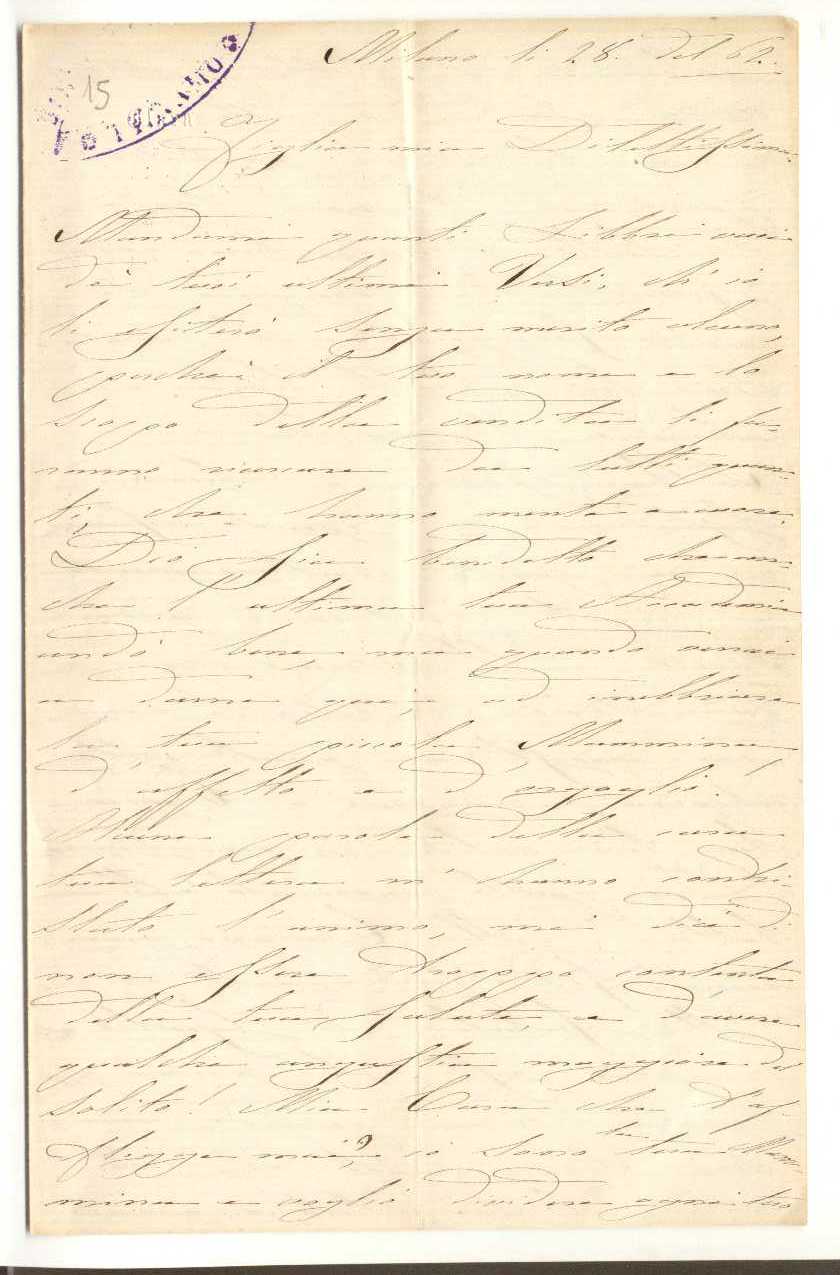 15
Milano li 28. del 62.
Figlia mia Dilettissima.
Mandami quanti Libbri vuoi
de' tuoi ultimi Versi, ch' io
li esiterò senza merito alcuno,
perchè il tuo nome e lo
scopo della vendita li fa-
ranno ricercare da tutti quan-
ti, che hanno mente e cuore.
Dio sia benedetto che an-
che l' ultima tua Accademia
andò bene, ma quando verrai
a darne qui, e ad inebbriare
la tua piccola Mammina
d' affetto e d' orgoglio!
Alcune parole della cara
tua lettera m' hanno contri-
stato l' animo, mi dici di
non essere troppo contenta
della tua salute, e d'avere
qualche angustia maggiore del
solito! Mia Cara che t'af-
fligge mai? io sono la tua Mam-
mina e voglio dividere ogni tuo